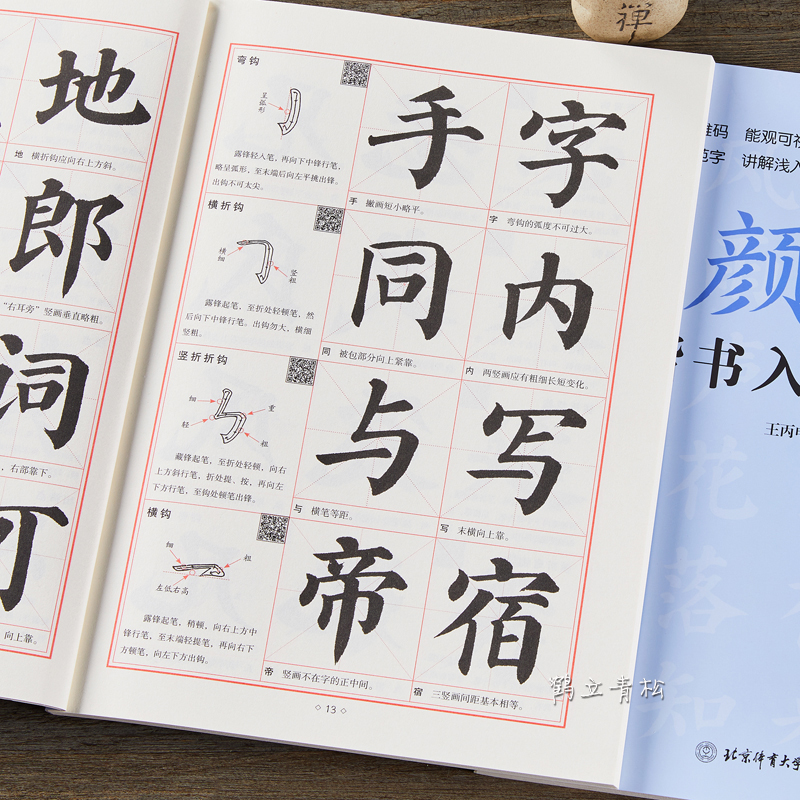 地
地 横折钩应向右上方斜。
郎
“右耳旁”竖画垂直略粗。
词
，右部靠下。
可
向上靠。
弯钩
呈弧形
露锋轻入笔，再向下中锋行笔，
略呈弧形，至末端后向左平挑出锋。
出钩不可太尖。
手
手 撇画短小略平。
字
字 弯钩的弧度不可过大。
横折钩
横细
竖粗
露锋起笔，至折处轻顿笔，然
后向下中锋行笔。出钩勿大，横细
竖粗。
同
同 被包部分向上紧靠。
内
内 两竖画应有粗细长短变化。
竖折折钩
细
重
轻
粗
藏锋起笔，至折处轻顿，向右
上方斜行笔，折处提、按，再向左
下方行笔，至钩处顿笔出锋。
与
与 横笔等距。
写
写 末横向上靠。
横钩
细
粗
左低右高
露锋起笔，稍顿，向右上方中
锋行笔，至末端轻提笔，再向右下
方顿笔，向左下方出钩。
帝
帝 竖画不在字的正中间。
宿
宿 三竖画间距基本相等。
13
禅
维码 能观可视
范字 讲解浅入
颜
楷书入
王丙申
花
落
知
北京体育大学
鹤立青松